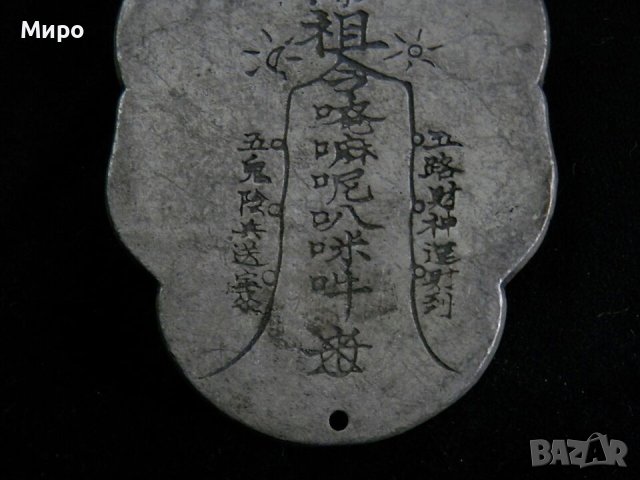 Миро
祖
令唵嘛呢叭咪吽
五路財神運財到
五鬼陰兵送宝
BAZAR